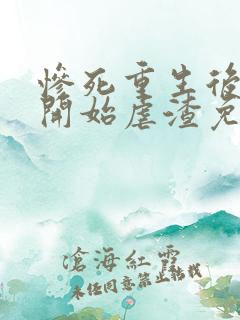 慘死重生後
開始虐渣兔
滄海紅雪
未經同意禁止轉載